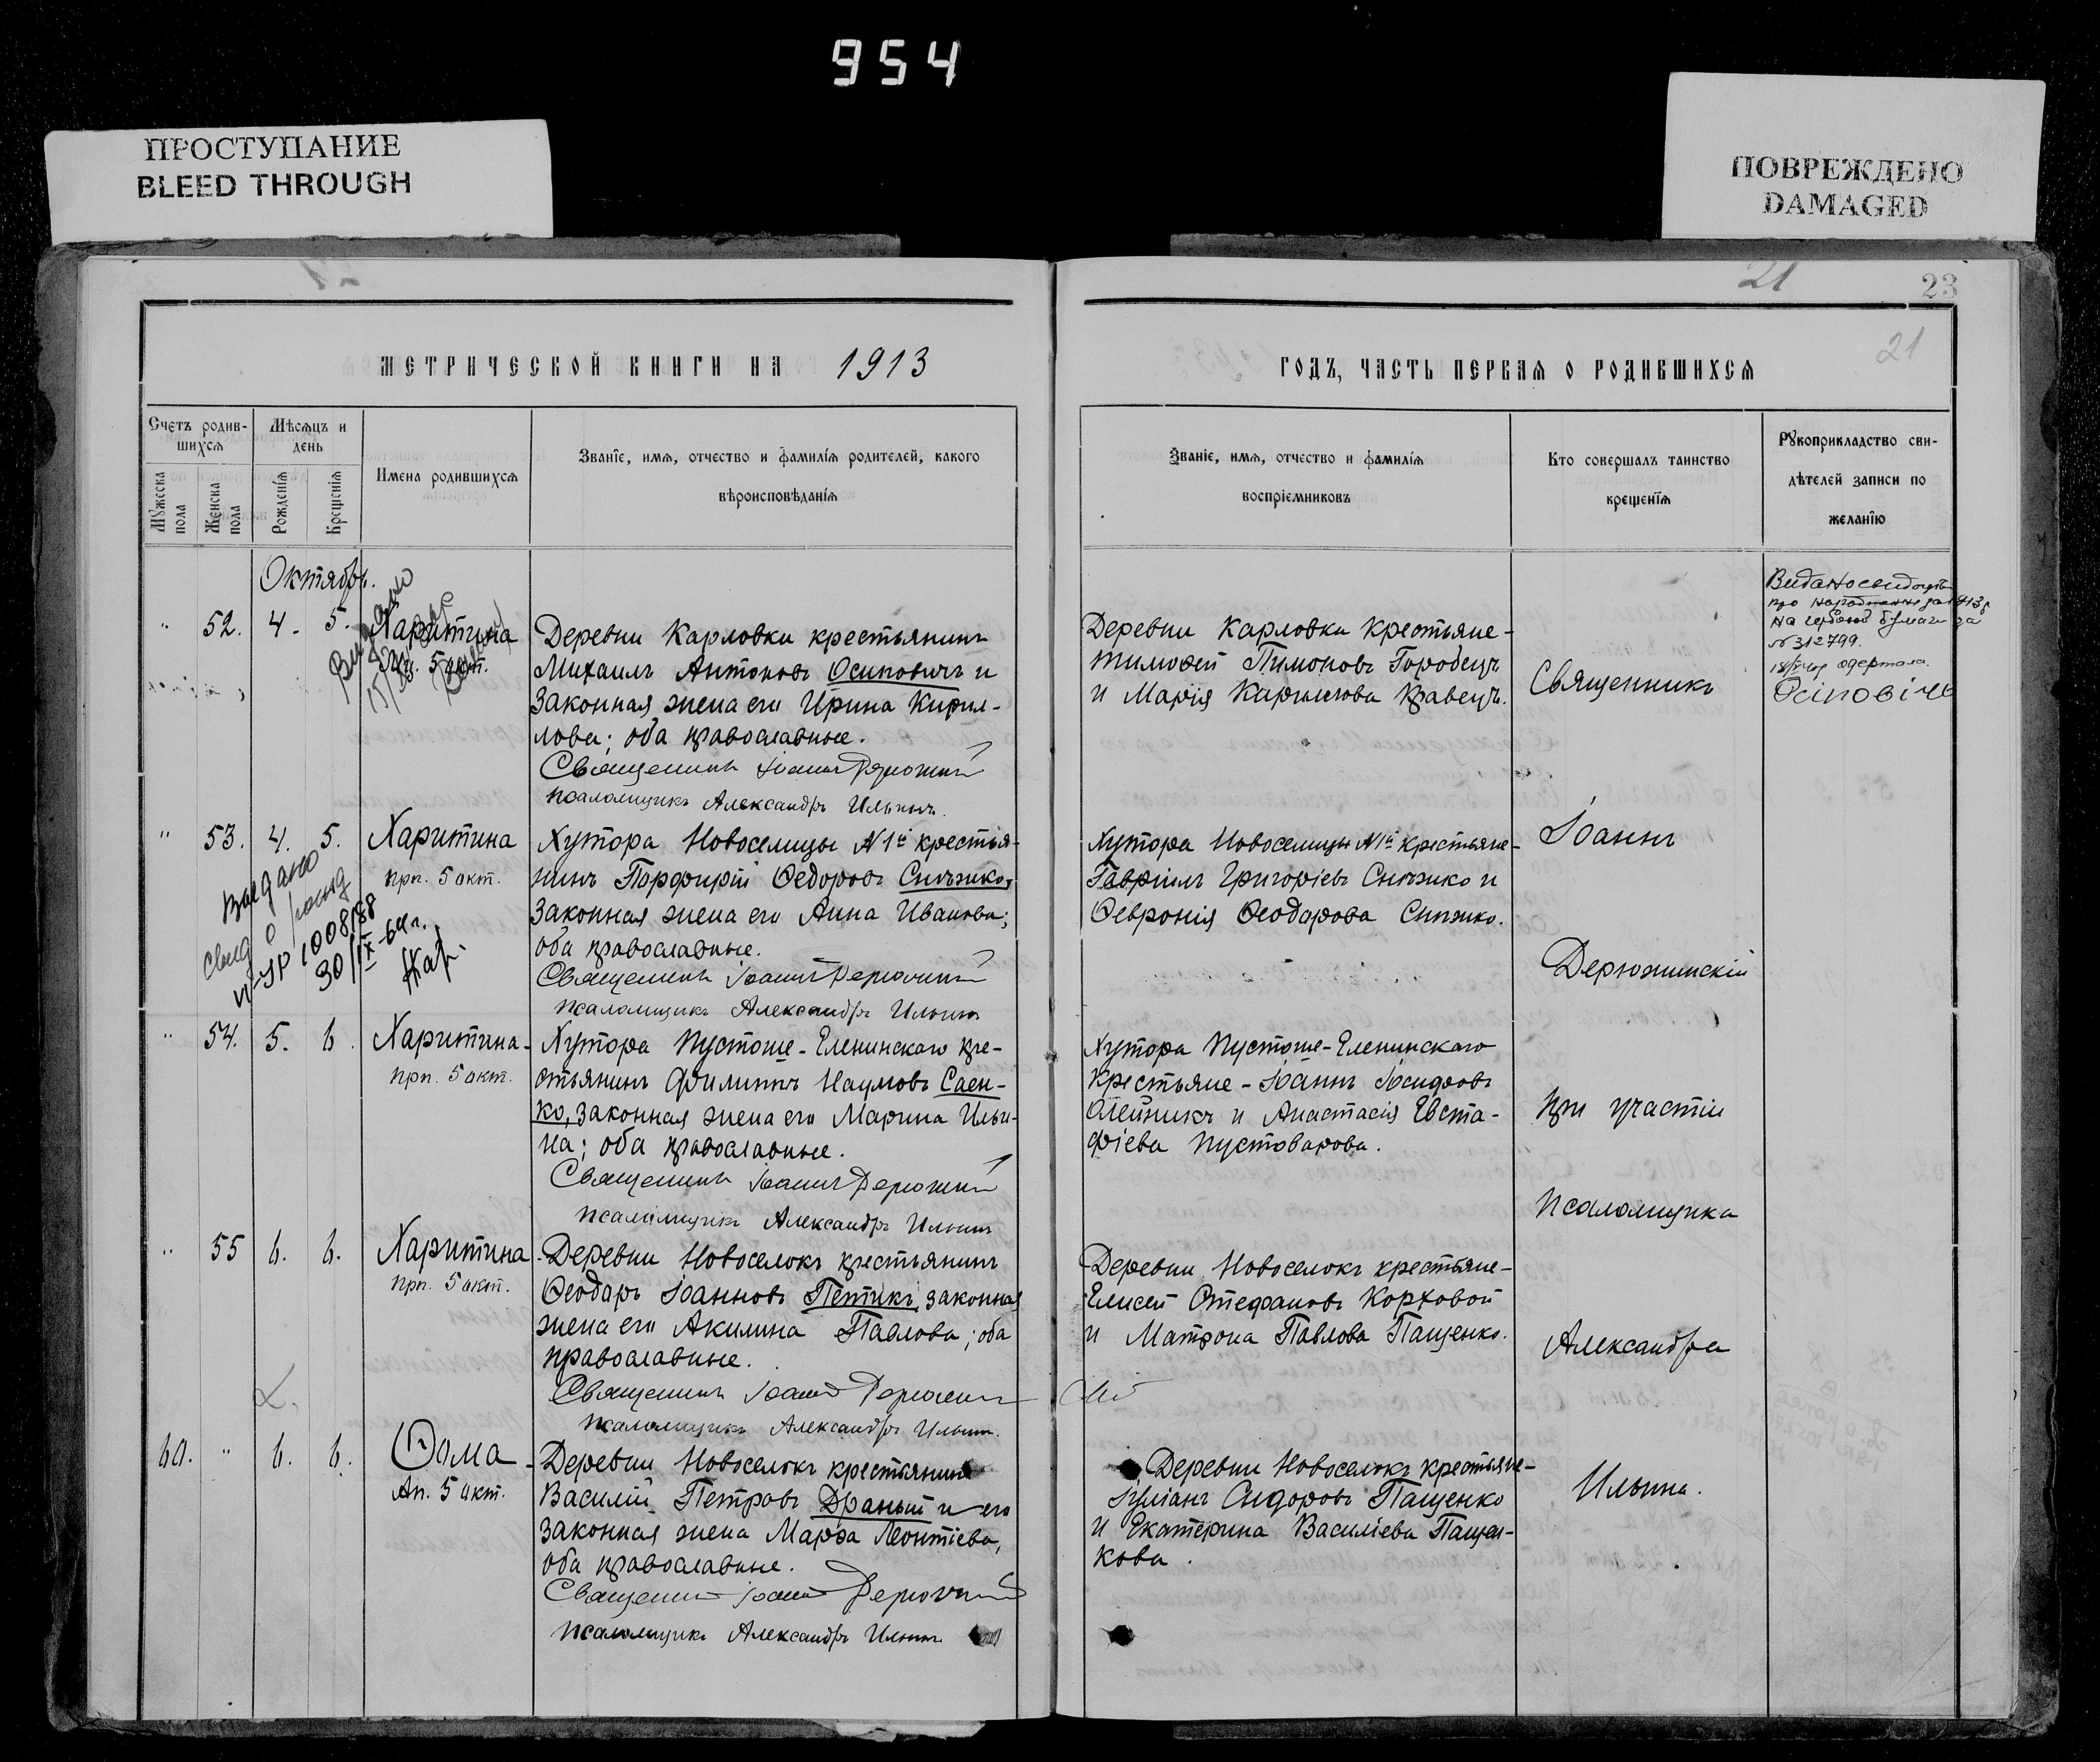 954
ПРОСТУПАНИЕ
BLEED THROUGH
ПОВРЕЖДЕНО
DAMAGED
21
23
21
МЕТРИЧЕСКОЙ КНИГИ НА 1913
ГОДЪ, ЧАСТЬ ПЕРВАЯ О РОДИВШИХСЯ
Счетъ родив-
шихся
Мужеска
пола
Женска
пола
Мѣсяцъ и
день
Рожденія
Крещенія
Имена родившихся
Званіе, имя, отчество и фамилія родителей, какого
вѣроисповѣданія
Званіе, имя, отчество и фамилія
воспріемниковъ
Кто совершалъ таинство
крещенія
Рукоприкладство сви-
дѣтелей записи по
желанію
Октябрь.
" 52. 4. 5. Харитина
прп. 5 окт.
Деревни Карловки крестьянинъ
Михаилъ Антоновъ Осиповичъ и
законная жена его Ирина Кирил-
лова; оба православные.
Священникъ Іоаннъ
псаломщикъ Александръ Ильинъ.
Деревни Карловки крестьяне-
Тимоѳей Пимоновъ Городецъ
и Марія Кириллова Кравецъ.
на
№ 312799.
одержала
Осіповіч
" 53. 4. 5. Харитина
прп. 5 окт.
Выдано
свид о рожд
II-УР 1008188
30/IX-64 г.
Хутора Новоселицы № 1й крестья-
нинъ Порфирій Ѳедоровъ Снѣжко,
законная жена его Анна Иванова;
оба православные.
Священникъ Іоаннъ
псаломщикъ Александръ Ильинъ
Хутора Новоселицы № 1й крестьяне-
Гавріилъ Григоріевъ Снѣжко и
Ѳевронія Ѳеодорова Снѣжко.
" 54. 5. 6. Харитина-
прп. 5 окт.
Хутора Пустоше-Еленинскаго кре-
стьянинъ Филиппъ Наумовъ Саен-
ко, законная жена его Марина Ильи-
на; оба православные.
Священникъ Іоаннъ
псаломщикъ Александръ Ильинъ
Хутора Пустоше-Еленинскаго
крестьяне-Іоаннъ Іосифовъ
Олейникъ и Анастасія Евста-
фіева Пустоварова.
" 55 6. 6. Харитина
прп. 5 окт.
Деревни Новоселокъ крестьянинъ
Ѳеодоръ Іоанновъ Петикъ, законная
жена его Акилина Павлова; оба
православные.
Священникъ Іоаннъ
псаломщикъ Александръ Ильинъ.
Деревни Новоселокъ крестьяне-
Елисей Стефановъ Корховой
и Матрона Павлова Пащенко.
60. " 6. 6. Ѳома
Ап. 5 окт.
Деревни Новоселокъ крестьянинъ
Василій Петровъ Драный и его
законная жена Марѳа Леонтіева,
оба православные.
Священникъ Іоаннъ
псаломщикъ Александръ Ильинъ
Деревни Новоселокъ крестьяне-
Іуліанъ Сидоровъ Пащенко
и Екатерина Василіева Пащен-
кова.
Священникъ
Іоаннъ
Дерюжинскій
при участіи
псаломщика
Александра
Ильина.